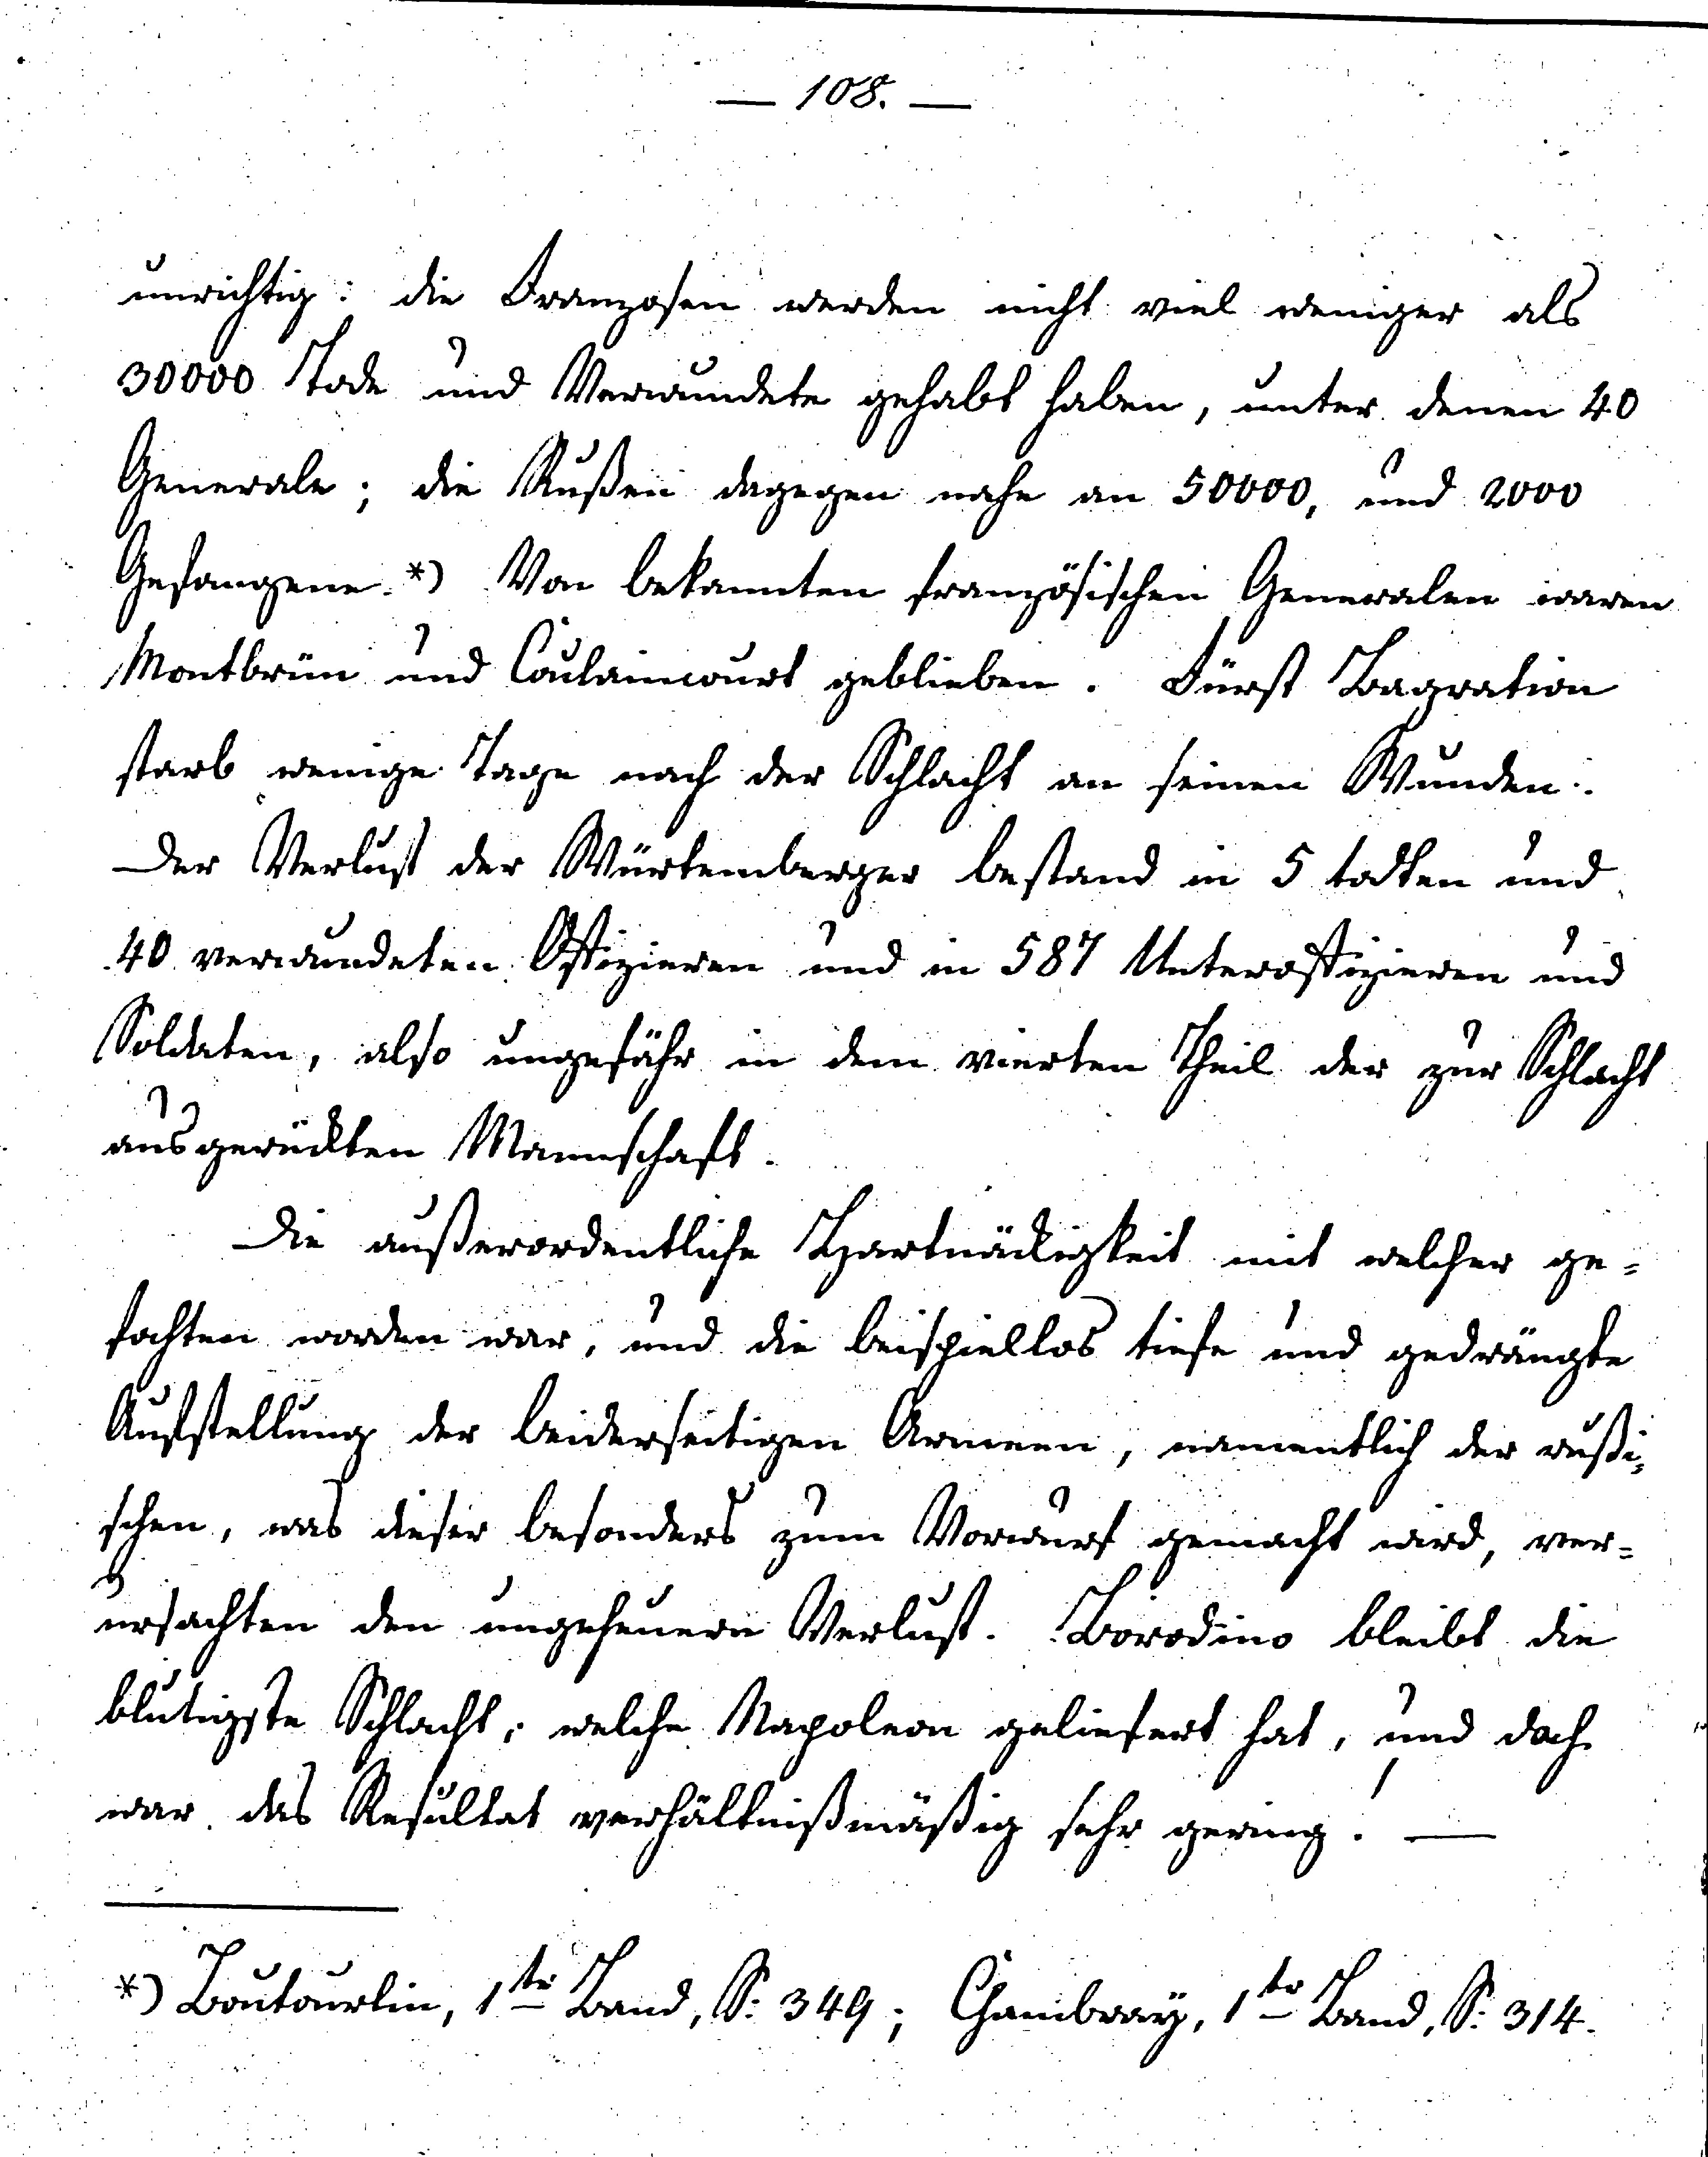 — 108. —
unrichtig: die Franzosen werden nicht viel weniger als
30000 Tode und Verwundete gehabt haben, unter denen 40
Generale; die Rußen dagegen nahe an 50000, und 2000
Gefangene.*) Von bekannten französischen Generalen waren
Montbrün und Coulaincourt geblieben. Fürst Bagration
starb wenige Tage nach der Schlacht an seinen Wunden.
Der Verlust der Würtemberger bestand in 5 todten und
40 verwundeten Offizieren und in 587 Unteroffizieren und
Soldaten, also ungefähr in dem vierten Theil der zur Schlacht
ausgerückten Mannschaft.
Die außerordentliche Hartnäckigkeit mit welcher ge=
fochten worden war, und die beispiellos tiefe und gedrängte
Aufstellung der beiderseitigen Armeen, namentlich der rußi=
schen, was dieser besonders zum Vorwurf gemacht wird, ver=
ursachten den ungeheuern Verlust. Borodino bleibt die
blutigste Schlacht, welche Napoleon geliefert hat, und doch
war das Resultat verhältnißmäßig sehr gering! —
*) Boutourlin, 1ter Band, S: 349; Chambray, 1ter Band, S: 314.